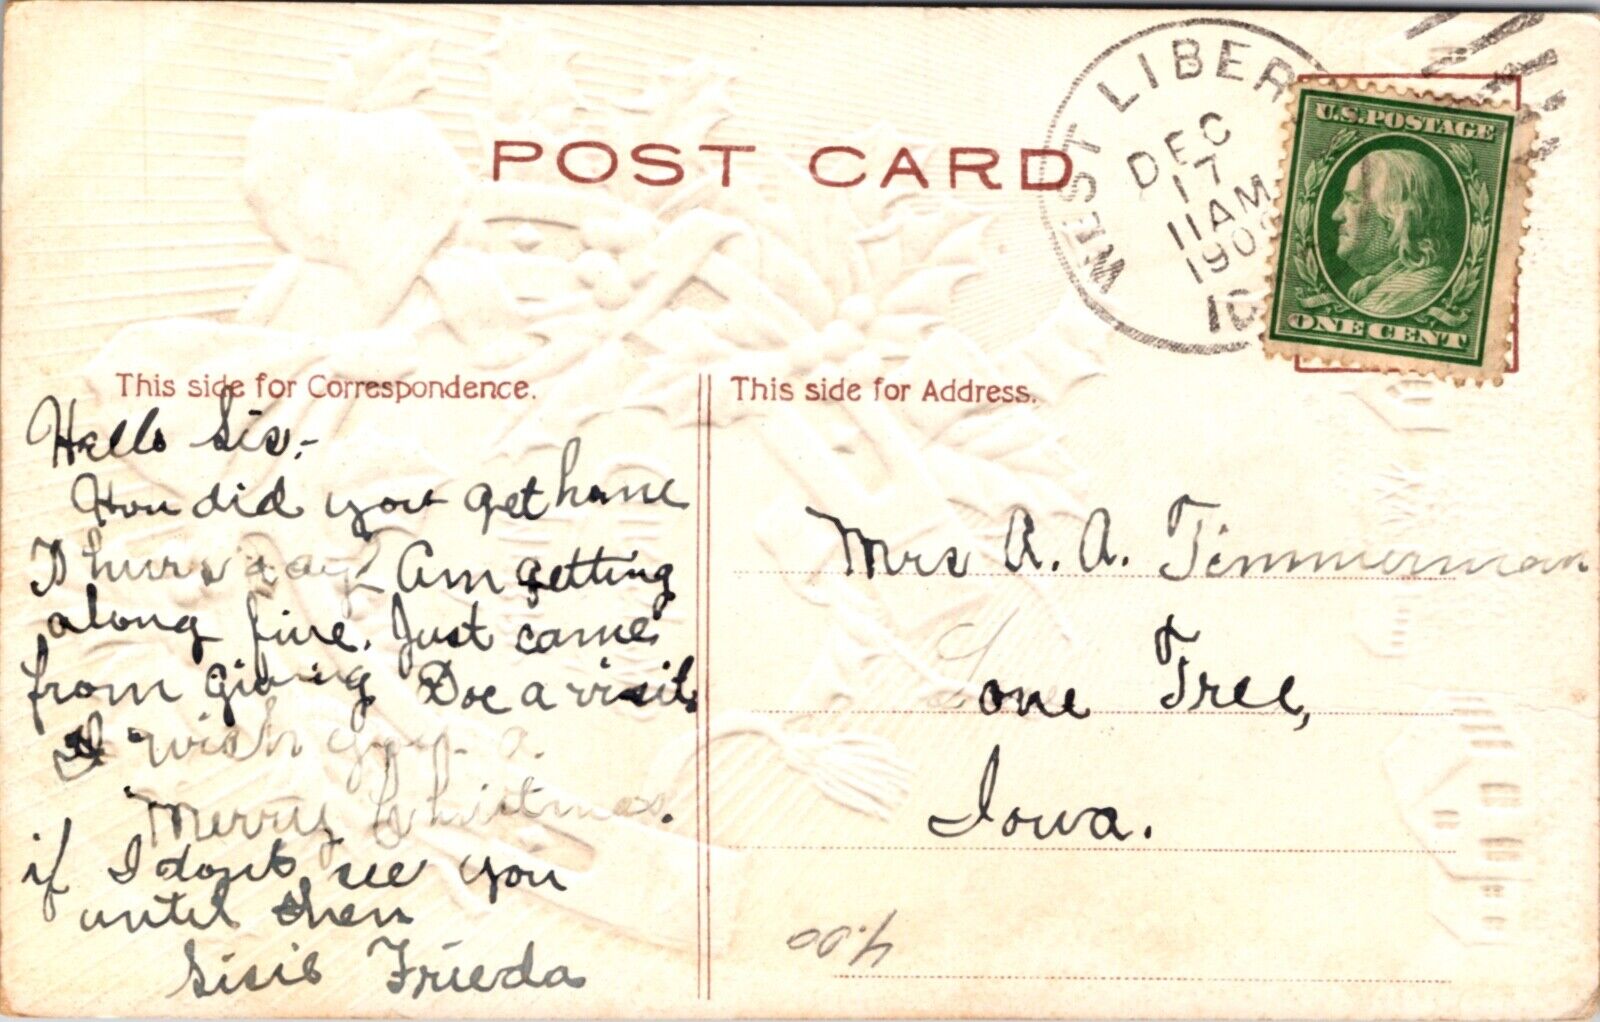 POST CARD
WEST LIBER
DEC
17
11 AM
190
U.S. POSTAGE
ONE CENT
This side for Correspondence.
This side for Address.
Hello Sis,-
How did you get home
Thursday? Am getting
along fine. Just came
from giving Doc a visit.
I wish you a
Merry Christmas.
if I don't see you
until then
Sisie Frieda
Mrs A. A. Timmerman
Lone Tree,
Iowa.
4.00